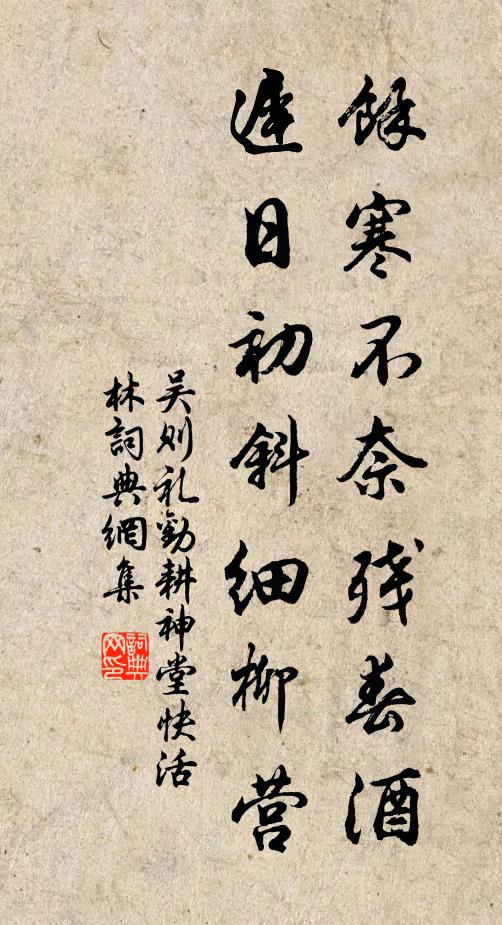 餘寒不奈残春酒
遲日初斜細柳营
吴则礼勸耕神堂快活
林詞典網集
詞典
网印